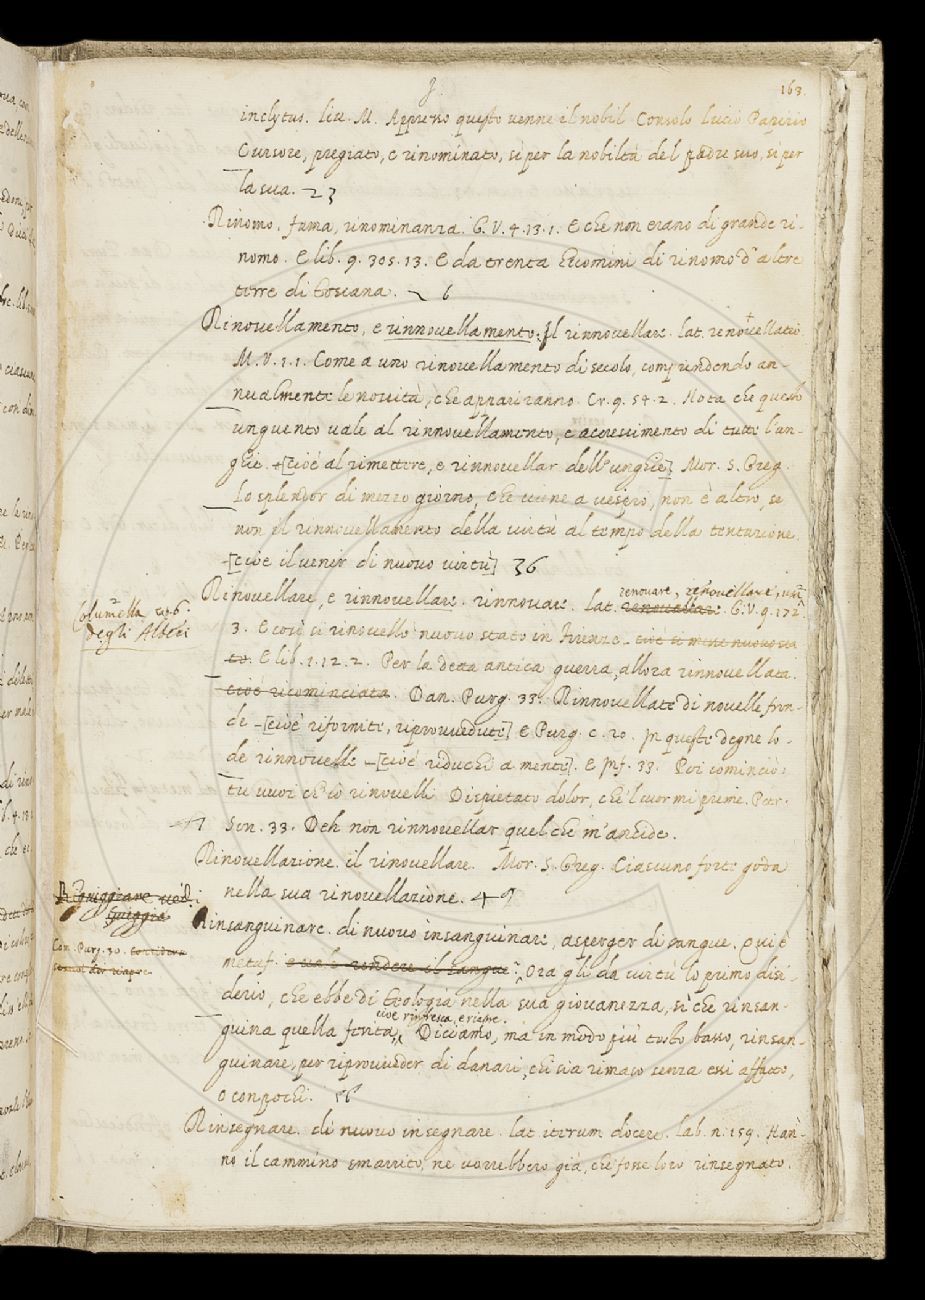 163.
inclytus. liu. M. Appresso questo uenne il nobil Consolo lucio Papirio
Cursore, pregiato, e rinominato, sì per la nobiltà del padre suo, sì per
la sua. 23
Rinomo. fama, rinominanza. G. V. 4. 13. 1. E che non erano di grande ri-
nomo. E lib. 9. 305. 13. E da trenta Ecomini di rinomo d'altre
terre di Toscana. 6
Rinouellamento, e rinnouellamento. Il rinnouellare. lat. renouellatio.
M. V. 1. 1. Come a uno rinouellamento di secolo, comprendendo an-
nualmente le nouità, che appariranno. Cr. 9. 54. 2. Nota che questo
unguento uale al rinnouellamento, e accrescimento di tutte l'un-
ghie. [cioè al rimettere, e rinnouellar dell'unghie] Mor. S. Greg.
Lo splendor di mezzo giorno, che uiene a uespro, non è altro, se
non il rinnouellamento della uirtù al tempo della tentazione.
[cioè il uenir di nuouo uirtù] 36
renouare, renouellare,
Rinouellare, e rinnouellare. rinnouare. lat. renouellare. G. V. 9. 172.
Columella
degli Alberi
3. E così si rinouellò nuouo stato in Firenze. cioè si mise nuouo sta
to. E lib. 1. 12. 2. Per la detta antica guerra, allora rinnouellata.
cioè ricominciata. Dan. Purg. 33. Rinnouellate di nouelle fron-
de [cioè rifornite, riprouuedute] E Purg. c. 20. In queste degne lo-
de rinnouelle [cioè riduchi a mente]. E Inf. 33. Poi cominciò:
tu uuoi ch'io rinouelli Dispietato dolor, che 'l cuor mi preme. Petr.
Son. 33. Deh non rinnouellar quel che m'ancide.
Rinouellazione. il rinouellare. Mor. S. Greg. Ciascuno forte goda
nella sua rinouellazione. 49
Ringuiggiare ued.
Guiggia
Rinsanguinare. di nuouo insanguinare, asperger di sangue. Qui è
Com. Purg. 30.
metaf. e uale rendere il sangue. Ora gli dà uirtù lo primo disi-
derio, che ebbe di Teologia nella sua giouanezza, sì che rinsan-
cioè rinfresca, e riapre.
guina quella ferita. Diciamo, ma in modo più tosto basso, rinsan-
guinare, per riprouueder di danari, chi sia rimaso senza essi affatto,
o con pochi. 56
Rinsegnare. di nuouo insegnare. lat. iterum docere. lab. n. 159. Han-
no il cammino smarrito, ne uorrebbero già, che fosse loro rinsegnato.